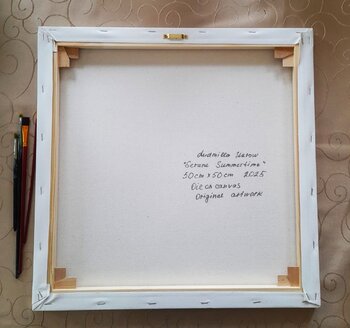 Ludmilla Ukrow
"Serene Summertime"
50cm x 50cm 2025
Oil on canvas
Original artwork